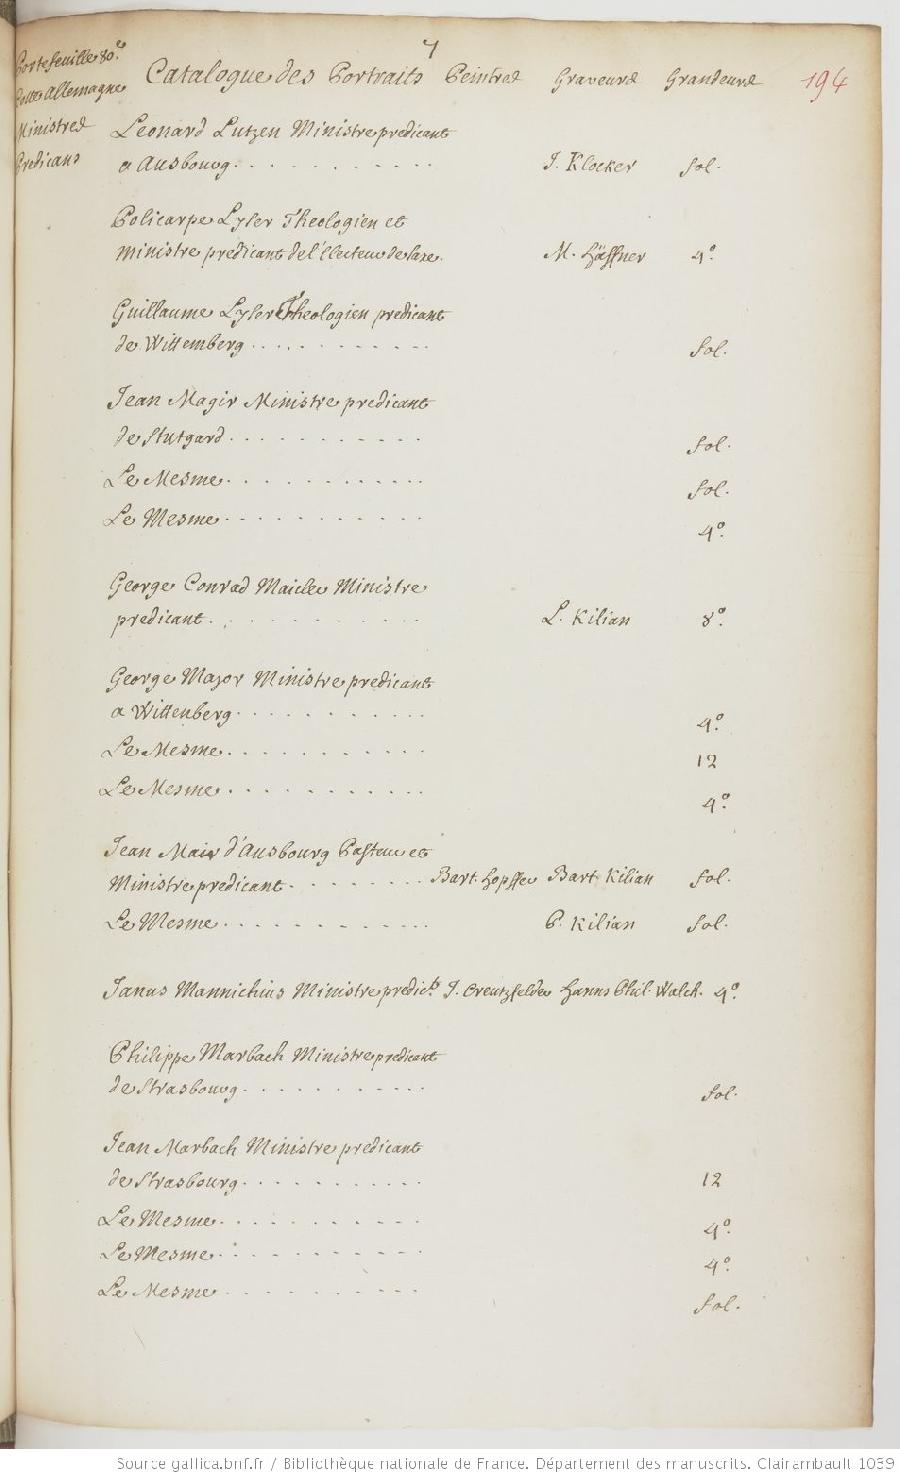 7
Portefeuille 80.e
Cotte Allemagne
Ministres
Predicans
Catalogue des Portraits Peintres Graveurs Grandeurs 194
Leonard Lutzen Ministre predicant
a Ausbourg. . . . . . . . . . . J. Klocker fol.
Policarpe Lyser Theologien et
ministre predicant de l'Electeur de Saxe. M. Häffner 4.º
Guillaume Lyser Theologien predicant
de Wittemberg . . . . . . . . . . fol.
Jean Magir Ministre predicant
de Stutgard . . . . . . . . . . fol.
Le Mesme . . . . . . . . . . . fol.
Le Mesme . . . . . . . . . . . 4.º
George Conrad Maicler Ministre
predicant . . . . . . . . . . L. Kilian 8.º
George Major Ministre predicant
a Wittenberg . . . . . . . . . . 4.º
Le Mesme . . . . . . . . . . . 12
Le Mesme . . . . . . . . . . . 4.º
Jean Mair d'Ausbourg Pasteur et
Ministre predicant . . . . . . . . Bart. Hopffer Bart. Kilian fol.
Le Mesme . . . . . . . . . . . P. Kilian fol.
Janus Mannichius Ministre predict. J. Creutzfelder Hanns Phil. Walch. 4.º
Philippe Marbach Ministre predicant
de Strasbourg . . . . . . . . . . fol.
Jean Marbach Ministre predicant
de Strasbourg . . . . . . . . . . 12
Le Mesme . . . . . . . . . . . 4.º
Le Mesme . . . . . . . . . . . 4.º
Le Mesme . . . . . . . . . . . fol.
Source gallica.bnf.fr / Bibliothèque nationale de France. Département des manuscrits. Clairambault 1039